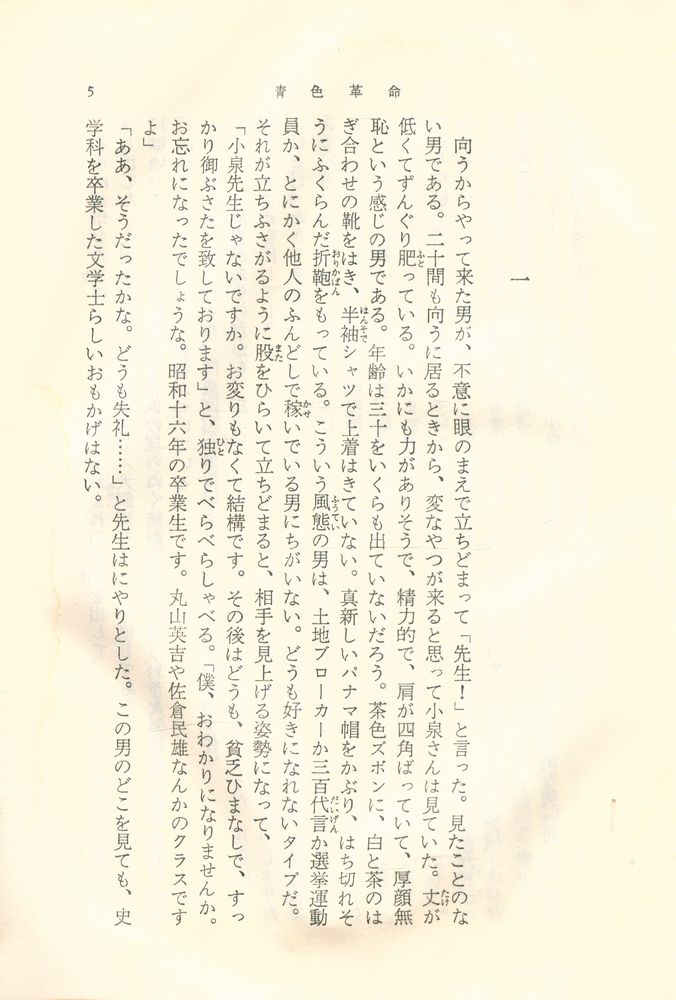 青色革命
5
一
向うからやって来た男が、不意に眼のまえで立ちどまって「先生！」と言った。見たことのな
い男である。二十間も向うに居るときから、変なやつが来ると思って小泉さんは見ていた。丈が
低くてずんぐり肥っている。いかにも力がありそうで、精力的で、肩が四角ばっていて、厚顔無
恥という感じの男である。年齢は三十をいくらも出ていないだろう。茶色ズボンに、白と茶のは
ぎ合わせの靴をはき、半袖シャツで上着はきていない。真新しいパナマ帽をかぶり、はち切れそ
うにふくらんだ折鞄をもっている。こういう風態の男は、土地ブローカーか三百代言か選挙運動
員か、とにかく他人のふんどしで稼いでいる男にちがいない。どうも好きになれないタイプだ。
それが立ちふさがるように股をひらいて立ちどまると、相手を見上げる姿勢になって、
「小泉先生じゃないですか。お変りもなくて結構です。その後はどうも、貧乏ひまなしで、すっ
かり御ぶさたを致しております」と、独りでべらべらしゃべる。「僕、おわかりになりませんか。
お忘れになったでしょうな。昭和十六年の卒業生です。丸山英吉や佐倉民雄なんかのクラスです
よ」
「ああ、そうだったかな。どうも失礼……」と先生はにやりとした。この男のどこを見ても、史
学科を卒業した文学士らしいおもかげはない。